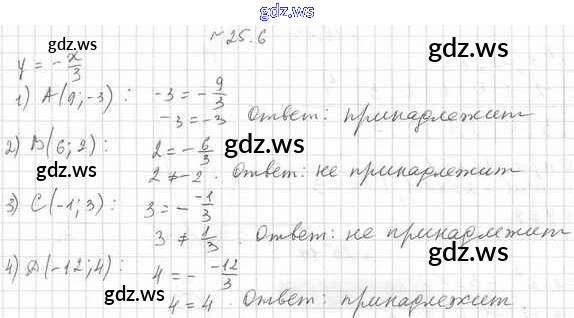 gdz.ws
№25.6
gdz.ws
gdz.ws
y = -x/3
1) A(9;-3): -3 = -9/3
-3 = -3 Ответ: принадлежит
gdz.ws
2) B(6;2): 2 = -6/3
gdz.ws
gdz.ws
2 ≠ -2. Ответ: не принадлежит
3) C(-1;3): 3 = - -1/3
3 ≠ 1/3. Ответ: не принадлежит
gdz.ws
4) D(-12;4): 4 = - -12/3
gdz.ws
4 = 4. Ответ: принадлежит.
gdz.ws